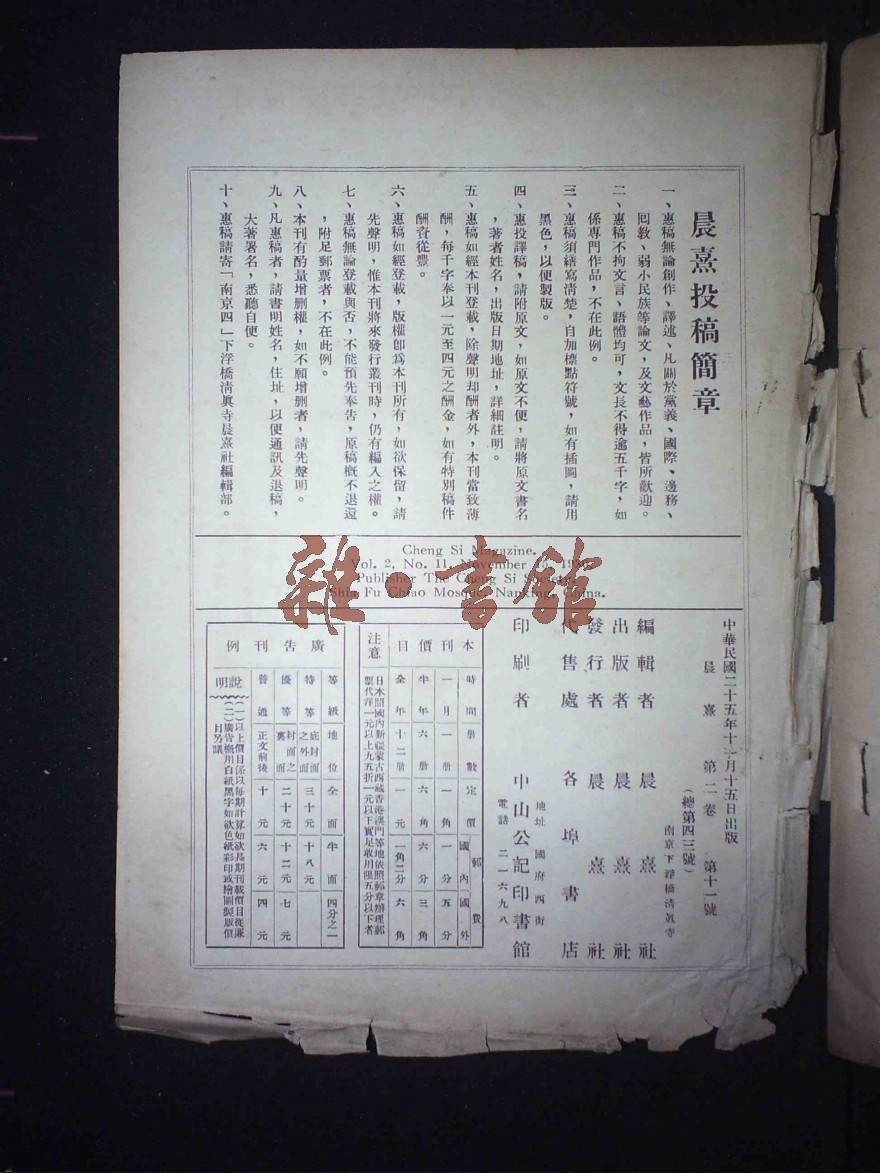 晨熹投稿簡章
一、惠稿無論創作、譯述、凡關於黨義、國際、邊務、
回教、弱小民族等論文，及文藝作品，皆所歡迎。
二、惠稿不拘文言、語體均可，文長不得逾五千字，如
係專門作品，不在此例。
三、惠稿須繕寫清楚，自加標點符號，如有插圖，請用
黑色，以便製版。
四、惠投譯稿，請附原文，如原文不便，請將原文書名
，著者姓名，出版日期地址，詳細註明。
五、惠稿如經本刊登載，除聲明却酬者外，本刊當致薄
酬，每千字奉以一元至四元之酬金，如有特別稿件
酬資從豐。
六、惠稿如經登載，版權卽爲本刊所有，如欲保留，請
先聲明，惟本刊將來發行叢刊時，仍有編入之權。
七、惠稿無論登載與否，不能預先奉告，原稿概不退還
，附足郵票者，不在此例。
八、本刊有酌量增刪權，如不願增刪者，請先聲明。
九、凡惠稿者，請書明姓名，住址，以便通訊及退稿，
大著署名，悉聽自便。
十、惠稿請寄「南京四」下浮橋清眞寺晨熹社編輯部。
Cheng Si Magazine.
Vol. 2, No. 11, November 15, 1936.
Publisher The Cheng Si Society
Shia Fu Chiao Mosque, Nanking, China.
雜·書館
中華民國二十五年十一月十五日出版
晨熹 第二卷 第十一號
（總第四三號）
南京下浮橋清眞寺
編輯者 晨熹社
出版者 晨熹社
發行者 晨熹社
代售處 各埠書店
地址 國府西街
印刷者 中山公記印書館
電話 二一六九八
本刊價目
時間 册數 定價 郵費 國內 國外
一月 一册 一角 一分 五分
半年 六册 六角 六分 三角
全年 十二册 一元 一角二分 六角
注意
日本照國內新疆蒙古西藏香港澳門等地依照郵章辦理郵
票代洋一元以上九五折一元以下實足收用限五分以下者
廣告刊例
等級 地位 全面 半面 四分之一
特等 底封面之外面 三十元 十八元
優等 封面之裏面 二十元 十二元 七元
普通 正文前後 十元 六元 四元
說明
（一）以上價目係以每期計算如欲長期刊載價目從廉
（二）廣告概用白紙黑字如欲色紙彩印或繪圖製版價
目另議